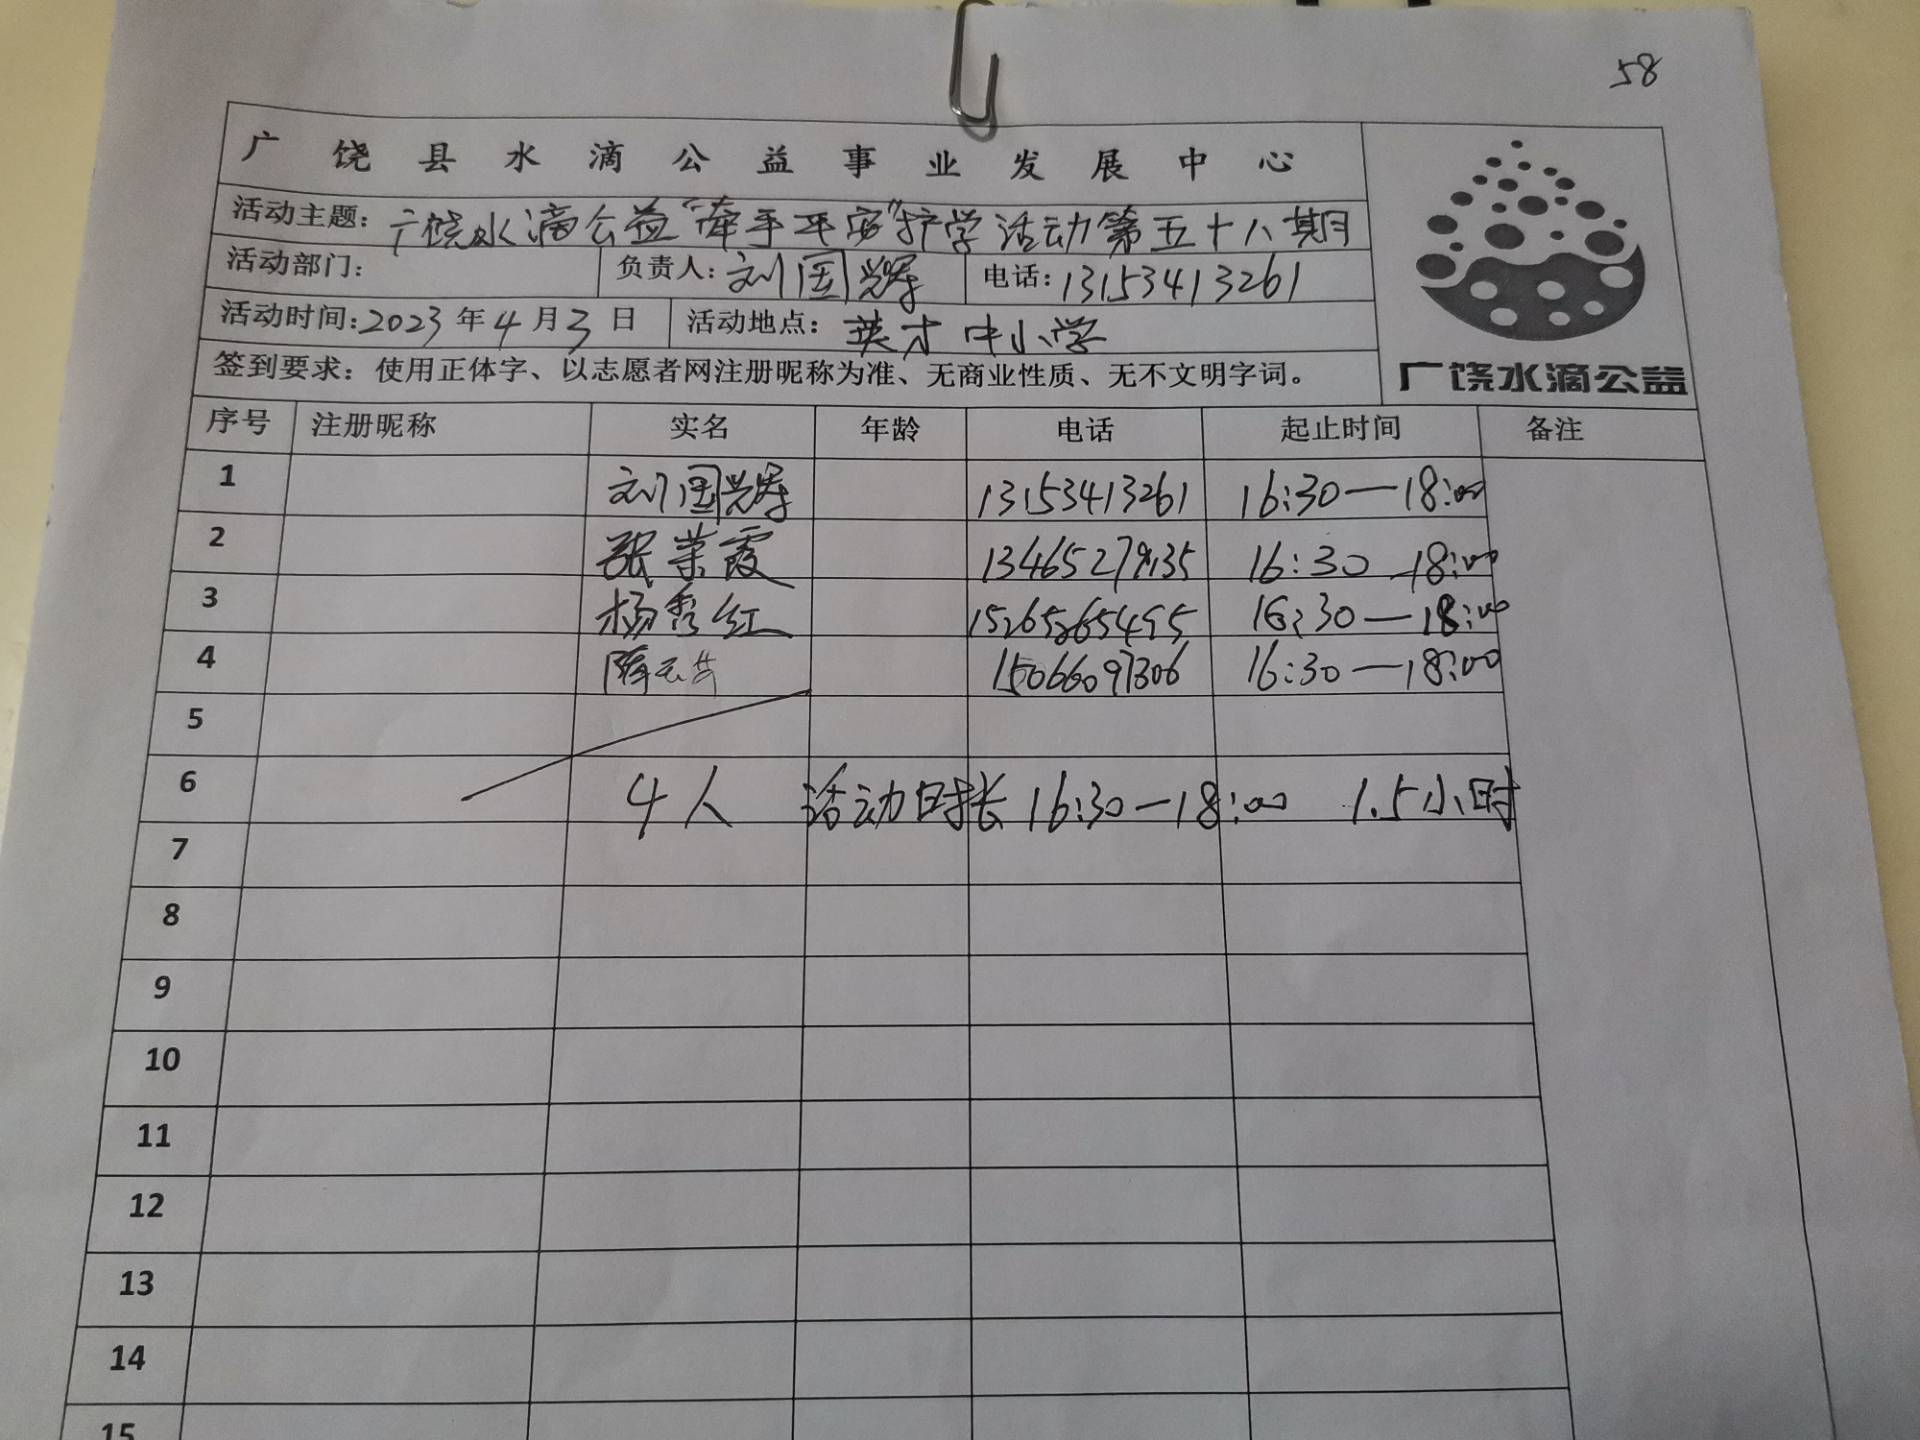 58
广饶县水滴公益事业发展中心
活动主题：广饶水滴公益“牵手平安”护学活动第五十八期
活动部门： 负责人：刘国辉 电话：13153413261
活动时间：2023年4月3日 活动地点：英才中小学
签到要求：使用正体字、以志愿者网注册昵称为准、无商业性质、无不文明字词。
广饶水滴公益
序号 注册昵称 实名 年龄 电话 起止时间 备注
1 刘国辉 13153413261 16:30—18:00
2 张荣霞 16:30—18:00
3 杨秀红 16:30—18:00
4 15066097306 16:30—18:00
5
6 4人 活动时长 16:30—18:00 1.5小时
7
8
9
10
11
12
13
14
15